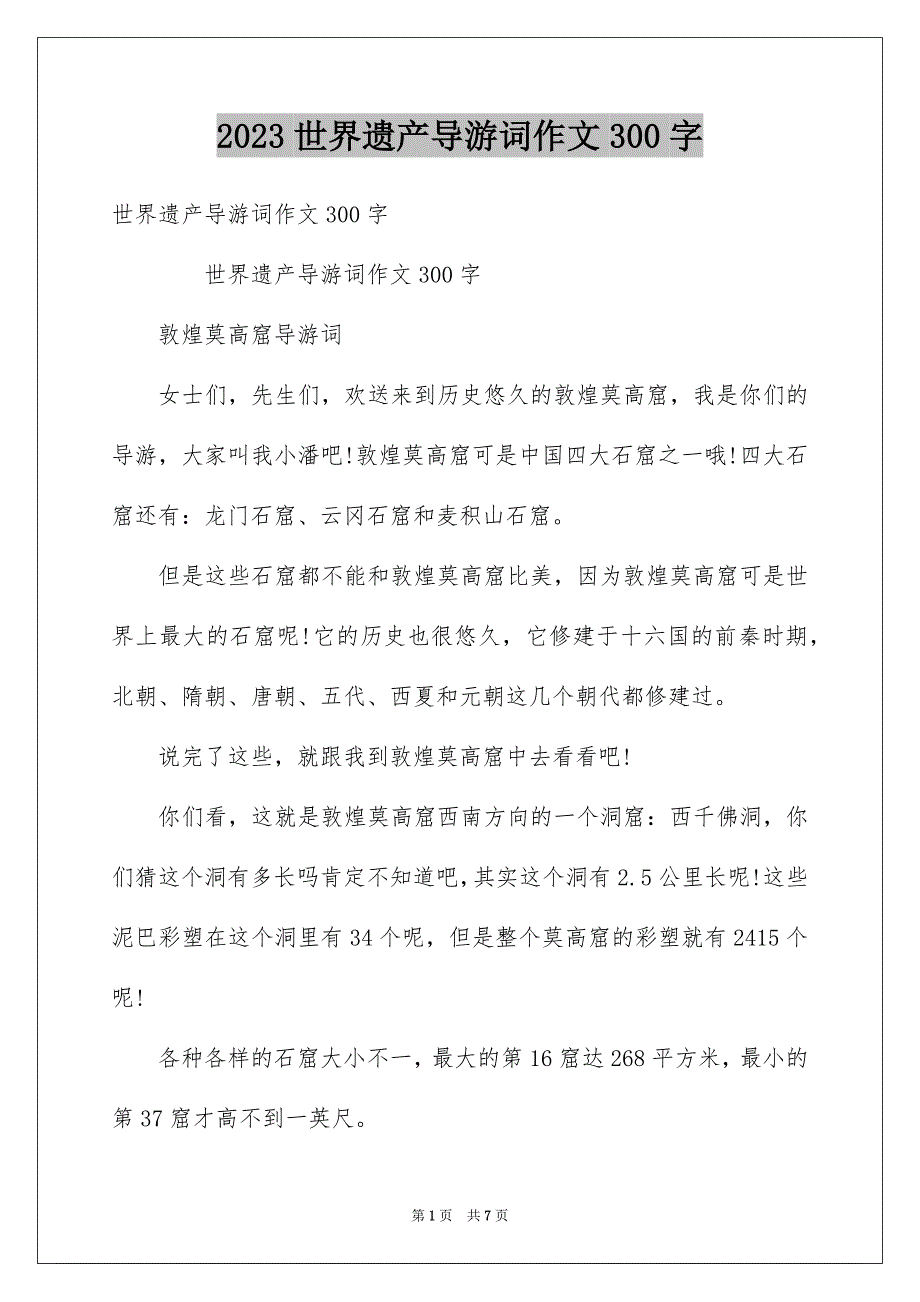 2023世界遗产导游词作文300字
世界遗产导游词作文300字
世界遗产导游词作文300字
敦煌莫高窟导游词
女士们，先生们，欢送来到历史悠久的敦煌莫高窟，我是你们的
导游，大家叫我小潘吧!敦煌莫高窟可是中国四大石窟之一哦!四大石
窟还有：龙门石窟、云冈石窟和麦积山石窟。
但是这些石窟都不能和敦煌莫高窟比美，因为敦煌莫高窟可是世
界上最大的石窟呢!它的历史也很悠久，它修建于十六国的前秦时期，
北朝、隋朝、唐朝、五代、西夏和元朝这几个朝代都修建过。
说完了这些，就跟我到敦煌莫高窟中去看看吧!
你们看，这就是敦煌莫高窟西南方向的一个洞窟：西千佛洞，你
们猜这个洞有多长吗肯定不知道吧,其实这个洞有2.5公里长呢!这些
泥巴彩塑在这个洞里有34个呢，但是整个莫高窟的彩塑就有2415个
呢!
各种各样的石窟大小不一，最大的第16窟达268平方米，最小的
第37窟才高不到一英尺。
第1页 共7页